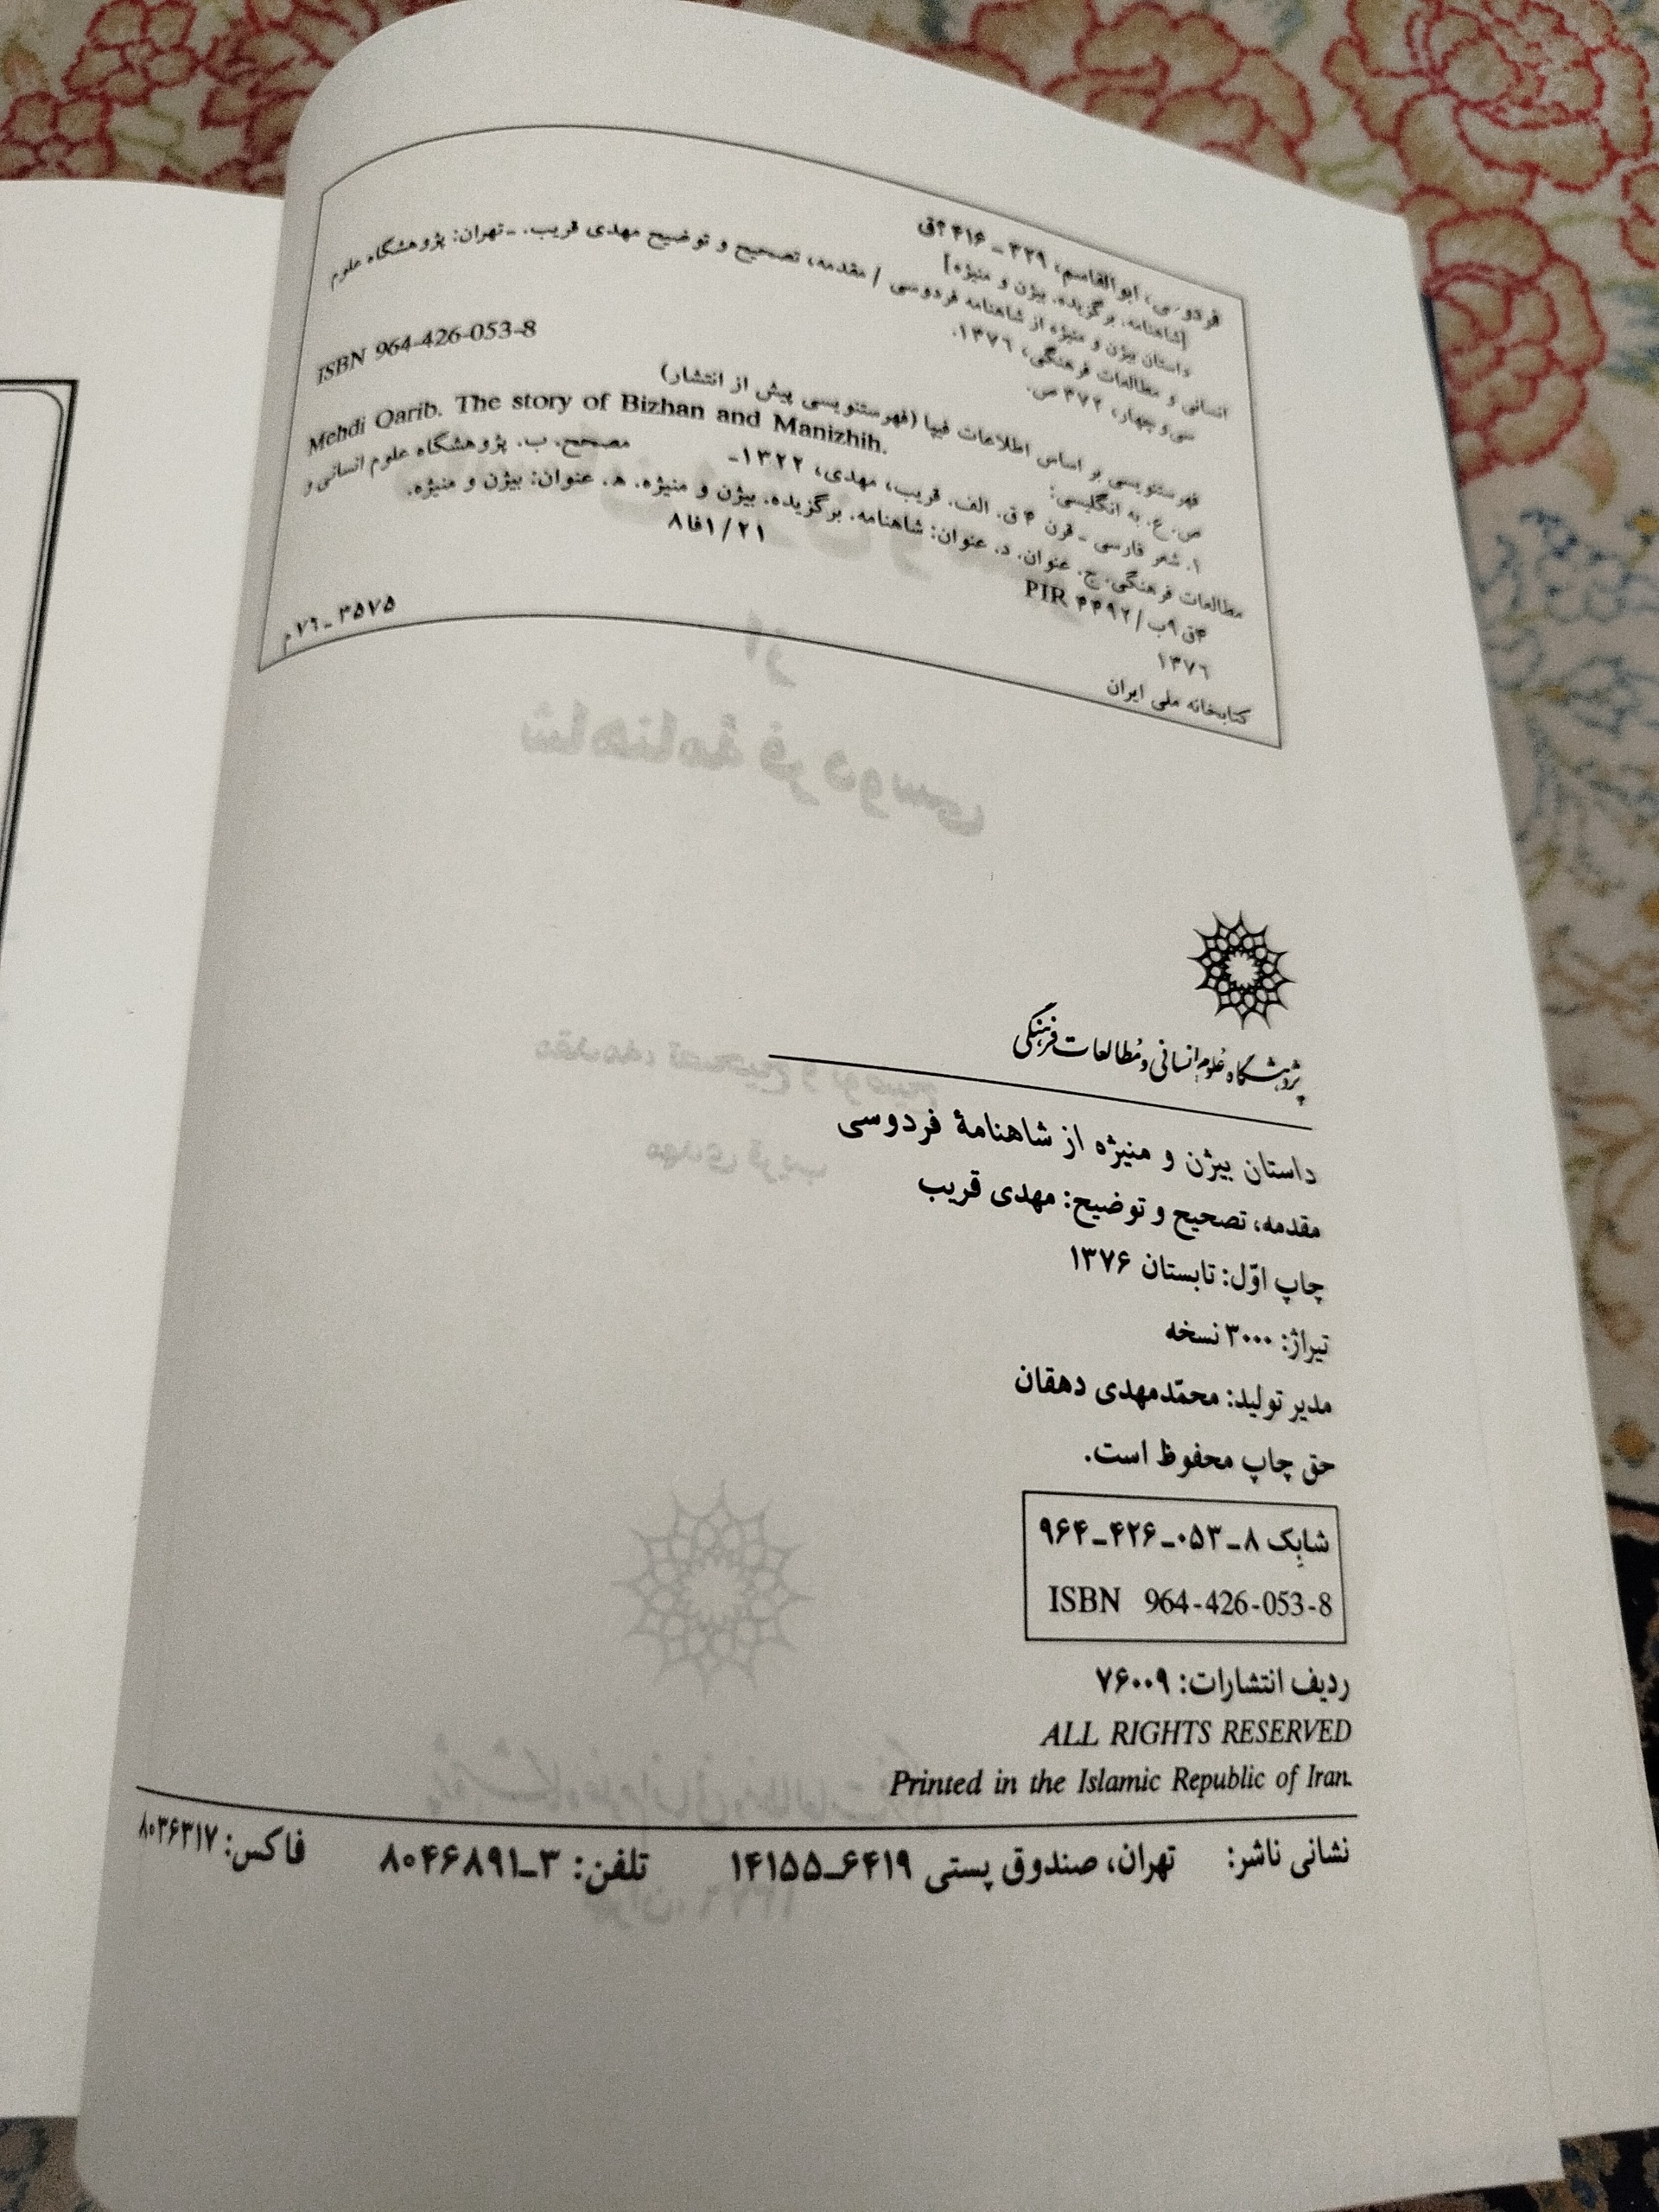 فردوسی، ابوالقاسم، ۳۲۹ ـ ۴۱۶؟ق
[شاهنامه. برگزیده. بیژن و منیژه]
داستان بیژن و منیژه از شاهنامه فردوسی / مقدمه، تصحیح و توضیح مهدی قریب. ـ تهران: پژوهشگاه علوم
انسانی و مطالعات فرهنگی، ۱۳۷۶.
سی و چهار، ۳۷۲ ص.
ISBN 964-426-053-8
فهرستنویسی بر اساس اطلاعات فیپا (فهرستنویسی پیش از انتشار)
ص. ع. به انگلیسی: Mehdi Qarib. The story of Bizhan and Manizhih.
۱. شعر فارسی ـ قرن ۴ ق. الف. قریب، مهدی، ۱۳۲۲ـ مصحح. ب. پژوهشگاه علوم انسانی و
مطالعات فرهنگی. ج. عنوان. د. عنوان: شاهنامه. برگزیده. بیژن و منیژه. ه. عنوان: بیژن و منیژه.
۴ق۹ب/ PIR ۴۴۹۲ ۸فا۱/۲۱
۱۳۷۶
کتابخانه ملی ایران ۳۵۷۵ ـ ۷۶م
پژوهشگاه علوم انسانی و مطالعات فرهنگی
داستان بیژن و منیژه از شاهنامهٔ فردوسی
مقدمه، تصحیح و توضیح: مهدی قریب
چاپ اوّل: تابستان ۱۳۷۶
تیراژ: ۳۰۰۰ نسخه
مدیر تولید: محمّدمهدی دهقان
حق چاپ محفوظ است.
شابِک ۸ـ۰۵۳ـ۴۲۶ـ۹۶۴
ISBN 964-426-053-8
ردیف انتشارات: ۷۶۰۰۹
ALL RIGHTS RESERVED
Printed in the Islamic Republic of Iran.
نشانی ناشر: تهران، صندوق پستی ۶۴۱۹ـ۱۴۱۵۵ تلفن: ۳ـ۸۰۴۶۸۹۱ فاکس: ۸۰۳۶۳۱۷